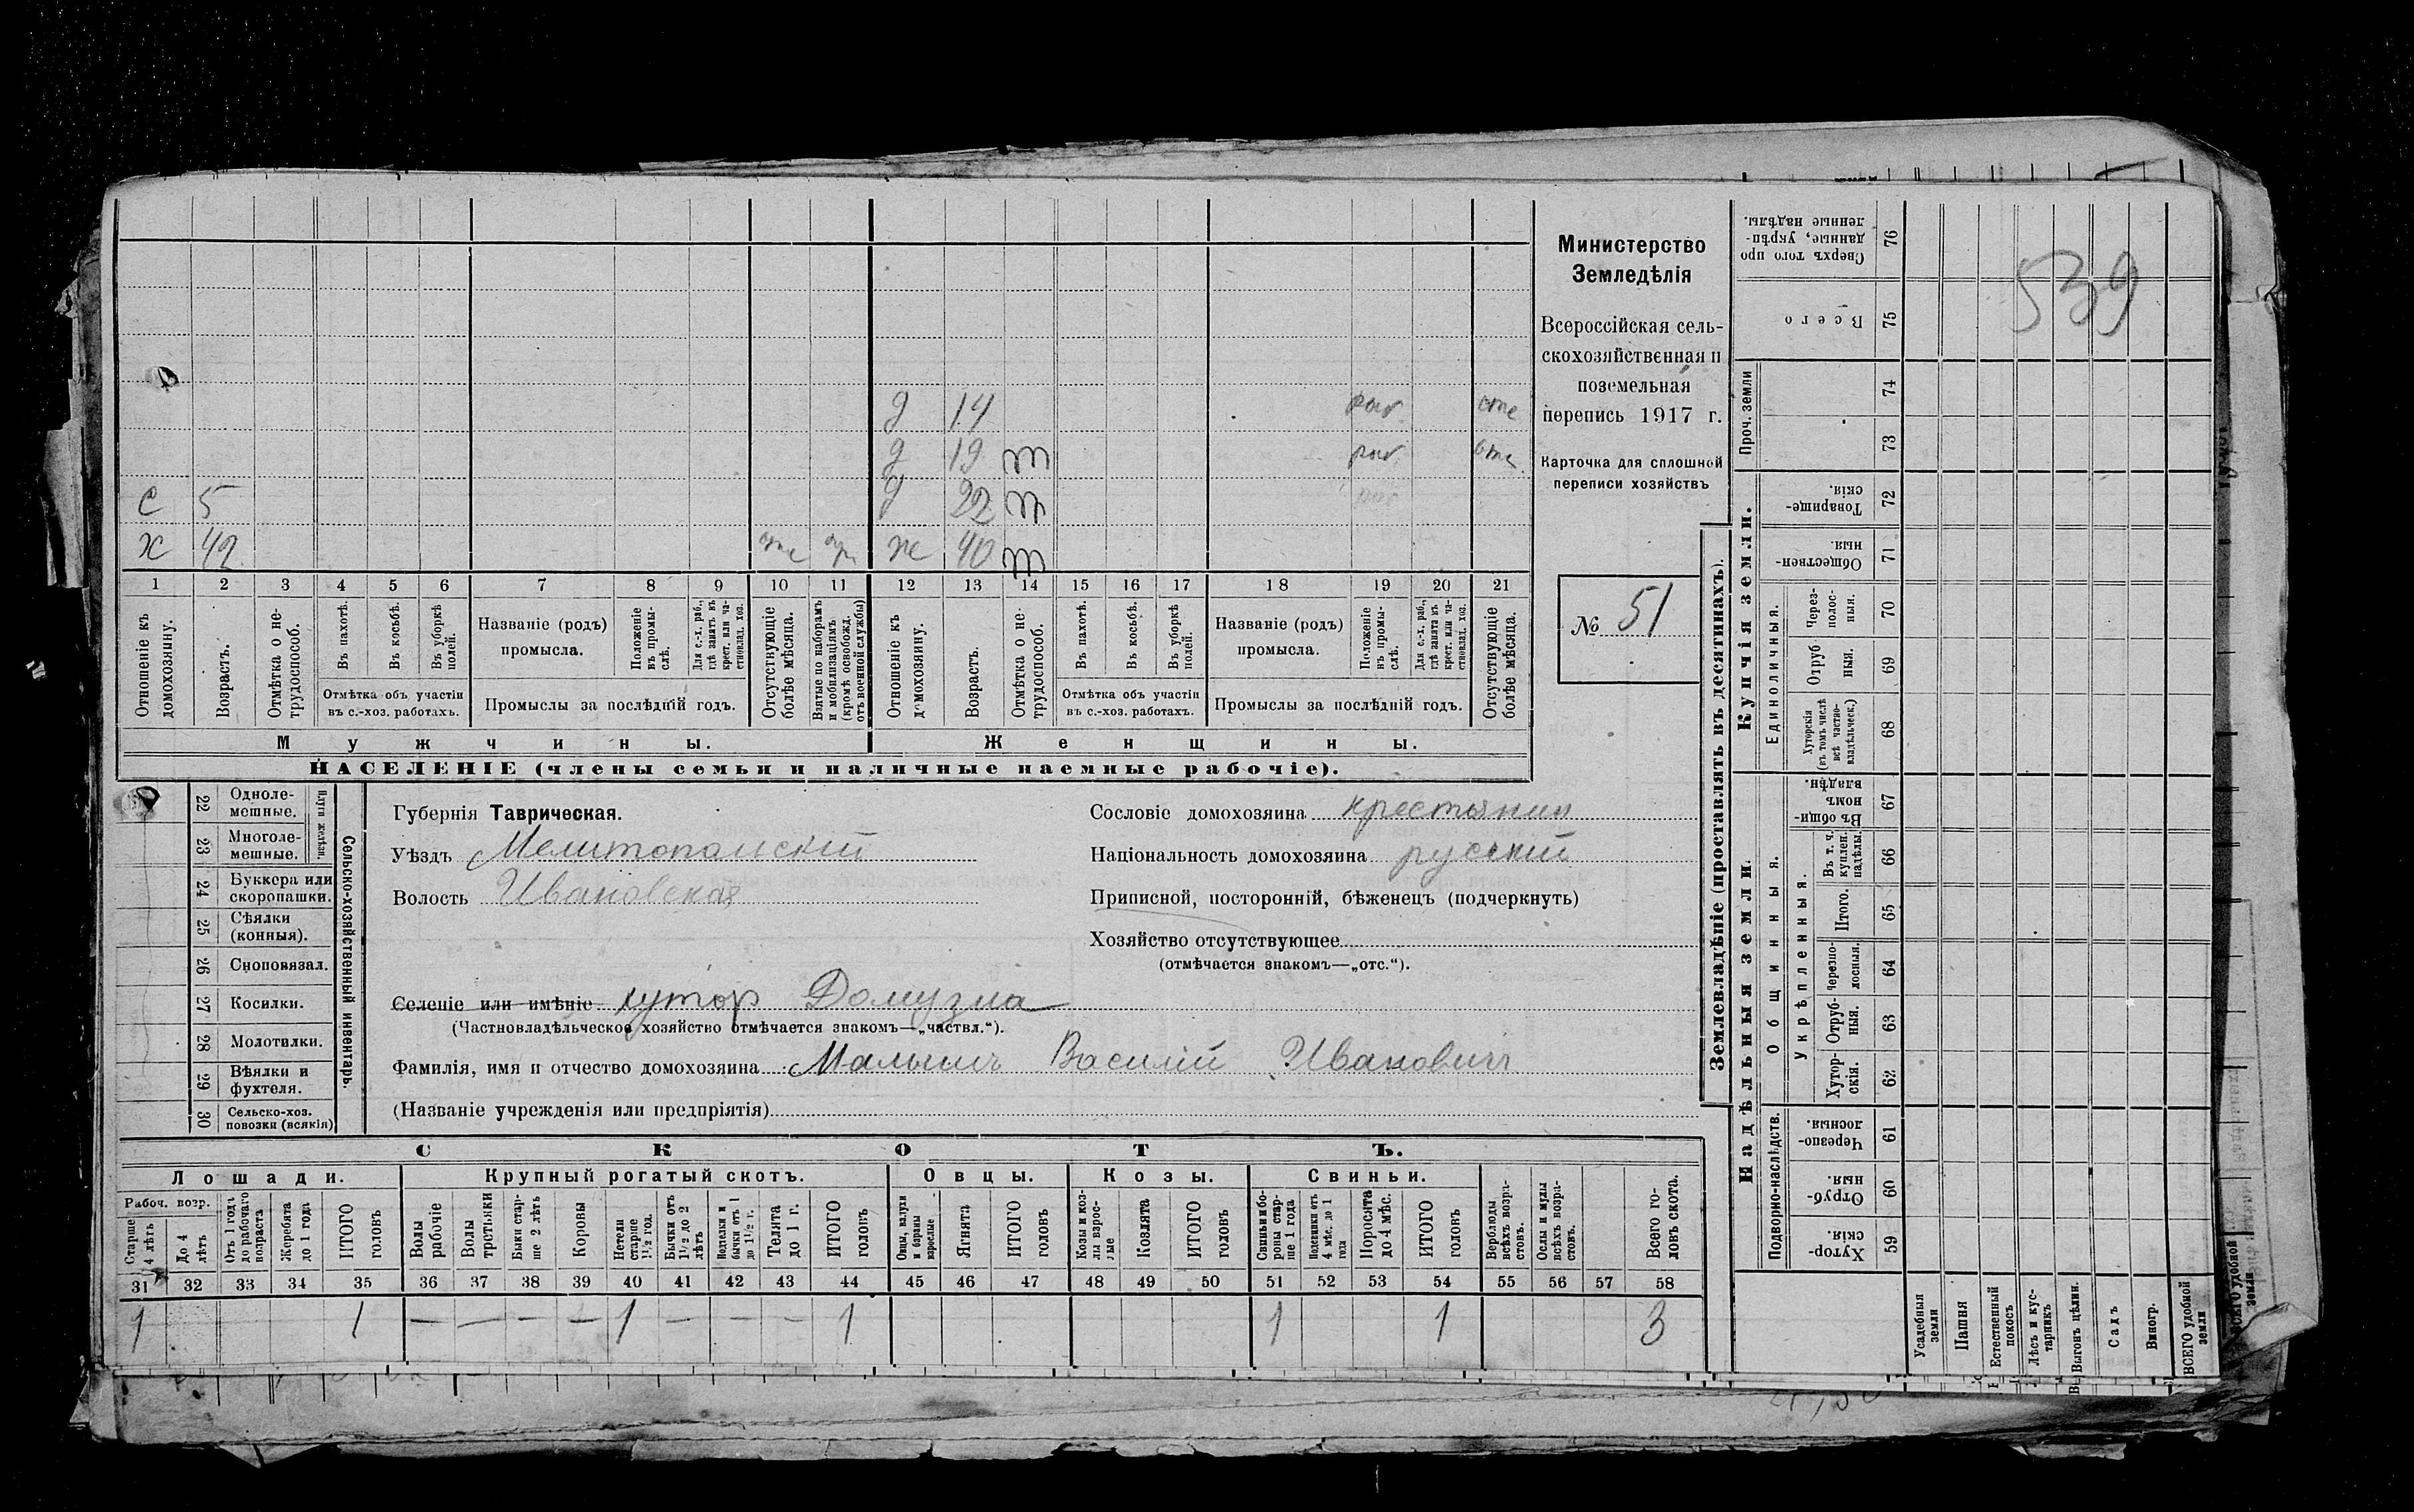 539
Министерство
Земледѣлія
Всероссійская сель-
скохозяйственная и
поземельная
перепись 1917 г.
Карточка для сплошной
переписи хозяйствъ
№ 51
д 14 отс
д 19 отс
с 5 д 22
х 42 отс ж 40
1 2 3 4 5 6 7 8 9 10 11 12 13 14 15 16 17 18 19 20 21
Отношеніе къ домохозяину.
Возрастъ.
Отмѣтка о не-трудоспособ.
Въ пахотѣ.
Въ косьбѣ.
Въ уборкѣ полей.
Отмѣтка объ участіи
въ с.-хоз. работахъ.
Названіе (родъ)
промысла.
Положеніе въ промы-слѣ.
Для с.-х. раб., гдѣ занятъ въ крест. или ча-стновлад. хоз.
Промыслы за послѣдній годъ.
Отсутствующіе болѣе мѣсяца.
Взятые по наборамъ и мобилизаціямъ (кромѣ освобожд. отъ военной службы)
Отношеніе къ домохозяину.
Возрастъ.
Отмѣтка о не-трудоспособ.
Въ пахотѣ.
Въ косьбѣ.
Въ уборкѣ полей.
Отмѣтка объ участіи
въ с.-хоз. работахъ.
Названіе (родъ)
промысла.
Положеніе въ промы-слѣ.
Для с.-х. раб., гдѣ занята въ крест. или ча-стновлад. хоз.
Промыслы за послѣдній годъ.
Отсутствующіе болѣе мѣсяца.
Мужчины. Женщины.
НАСЕЛЕНІЕ (члены семьи и наличные наемные рабочіе).
22 Одноле-мешные.
23 Многоле-мешные.
Плуги желѣзн.
24 Буккера или скоропашки.
25 Сѣялки (конныя).
26 Сноповязал.
27 Косилки.
28 Молотилки.
29 Вѣялки и фухтеля.
30 Сельско-хоз. повозки (всякія)
Сельско-хозяйственный инвентарь.
Губернія Таврическая.
Уѣздъ Мелитопольскій
Волость Ивановская
Селеніе или имѣніе хутор Домузла
(Частновладѣльческое хозяйство отмѣчается знакомъ—„частвл.“).
Фамилія, имя и отчество домохозяина Малышъ Василій Ивановичъ
(Названіе учрежденія или предпріятія)
Сословіе домохозяина крестьянин
Національность домохозяина русскій
Приписной, посторонній, бѣженецъ (подчеркнуть)
Хозяйство отсутствующее
(отмѣчается знакомъ—„отс.“).
СКОТЪ.
Лошади. Крупный рогатый скотъ. Овцы. Козы. Свиньи.
Рабоч. возр.
Старше 4 лѣтъ
До 4 лѣтъ
Отъ 1 годъ до рабочаго возраста
Жеребята до 1 года
ИТОГО головъ
Волы рабочіе
Волы третьяки
Быки стар-ше 2 лѣтъ
Коровы
Нетели старше 1½ год.
Бычки отъ 1½ до 2 лѣтъ
Нотелки и бычки отъ 1 до 1½ г.
Телята до 1 г.
ИТОГО головъ
Овцы, валухи и бараны взрослые
Ягнята
ИТОГО головъ
Козы и коз-лы взрос-лые
Козлята
ИТОГО головъ
Свиньи и бо-ровы стар-ше 1 года
Подсвинки отъ 4 мѣс. до 1 года
Поросята до 4 мѣс.
ИТОГО головъ
Верблюды всѣхъ возра-стовъ.
Ослы и мулы всѣхъ возра-стовъ.
Всего го-ловъ скота.
31 32 33 34 35 36 37 38 39 40 41 42 43 44 45 46 47 48 49 50 51 52 53 54 55 56 57 58
1 1 — — — — 1 — — — 1 1 1 3
Землевладѣніе (проставлять въ десятинахъ).
Купчія земли.
Надѣльныя земли.
Сверхъ того про данные, укрѣп-ленные надѣлы. 76
Всего 75
Проч. земли 74 73
Товарище-скія. 72
Обществен-ныя. 71
Единоличныя.
Через-полос-ныя. 70
Отруб ныя. 69
Хуторскія (въ томъ числѣ всѣ частно-владѣльческ.) 68
Общинныя.
Въ общи-номъ владѣн. 67
Укрѣпленныя.
Въ т. ч. куплен. надѣлы. 66
Итого. 65
Черезпо-лосныя. 64
Отруб-ныя. 63
Хутор-скія. 62
Подворно-наслѣдств.
Черезпо-лосныя. 61
Отруб-ныя. 60
Хутор-скія. 59
Усадебныя земли
Пашня
Естественный покосъ
Лѣсъ и кус-тарникъ
Выгонъ цѣлин.
Садъ
Виногр.
ВСЕГО удобной земли